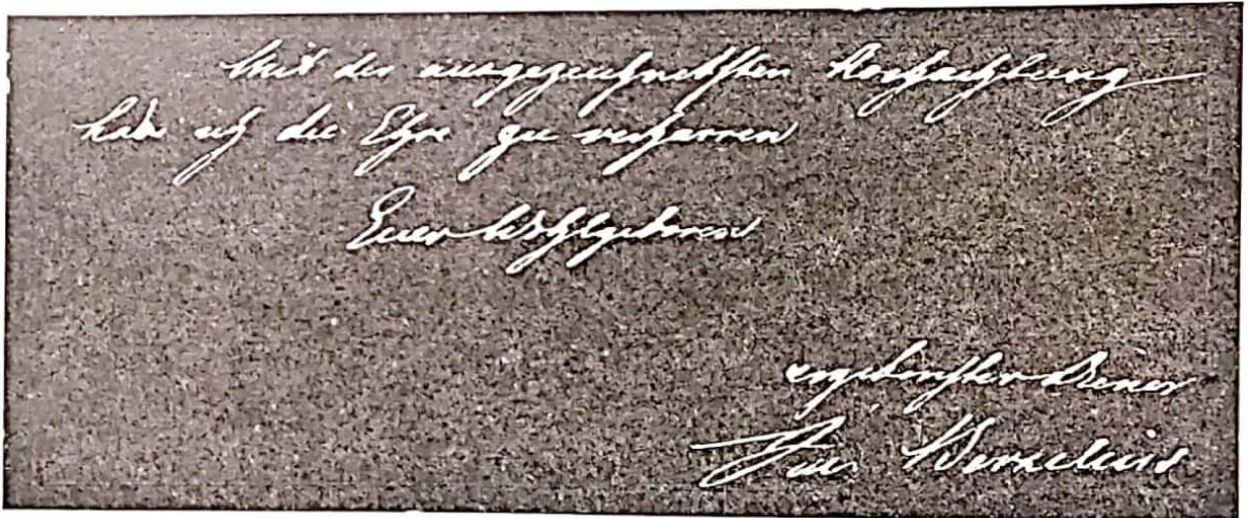 Mit der ausgezeichnetsten Hochachtung
habe ich die Ehre zu verharren
Euer Wohlgeboren
ergebenster Diener
Jac. Berzelius